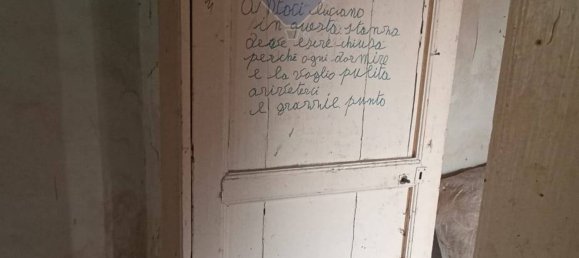 luciano
in questa stanza
deve esere chiusa
perchè ogni dormire
e la voglio pulita
arivederci
e grannie punto